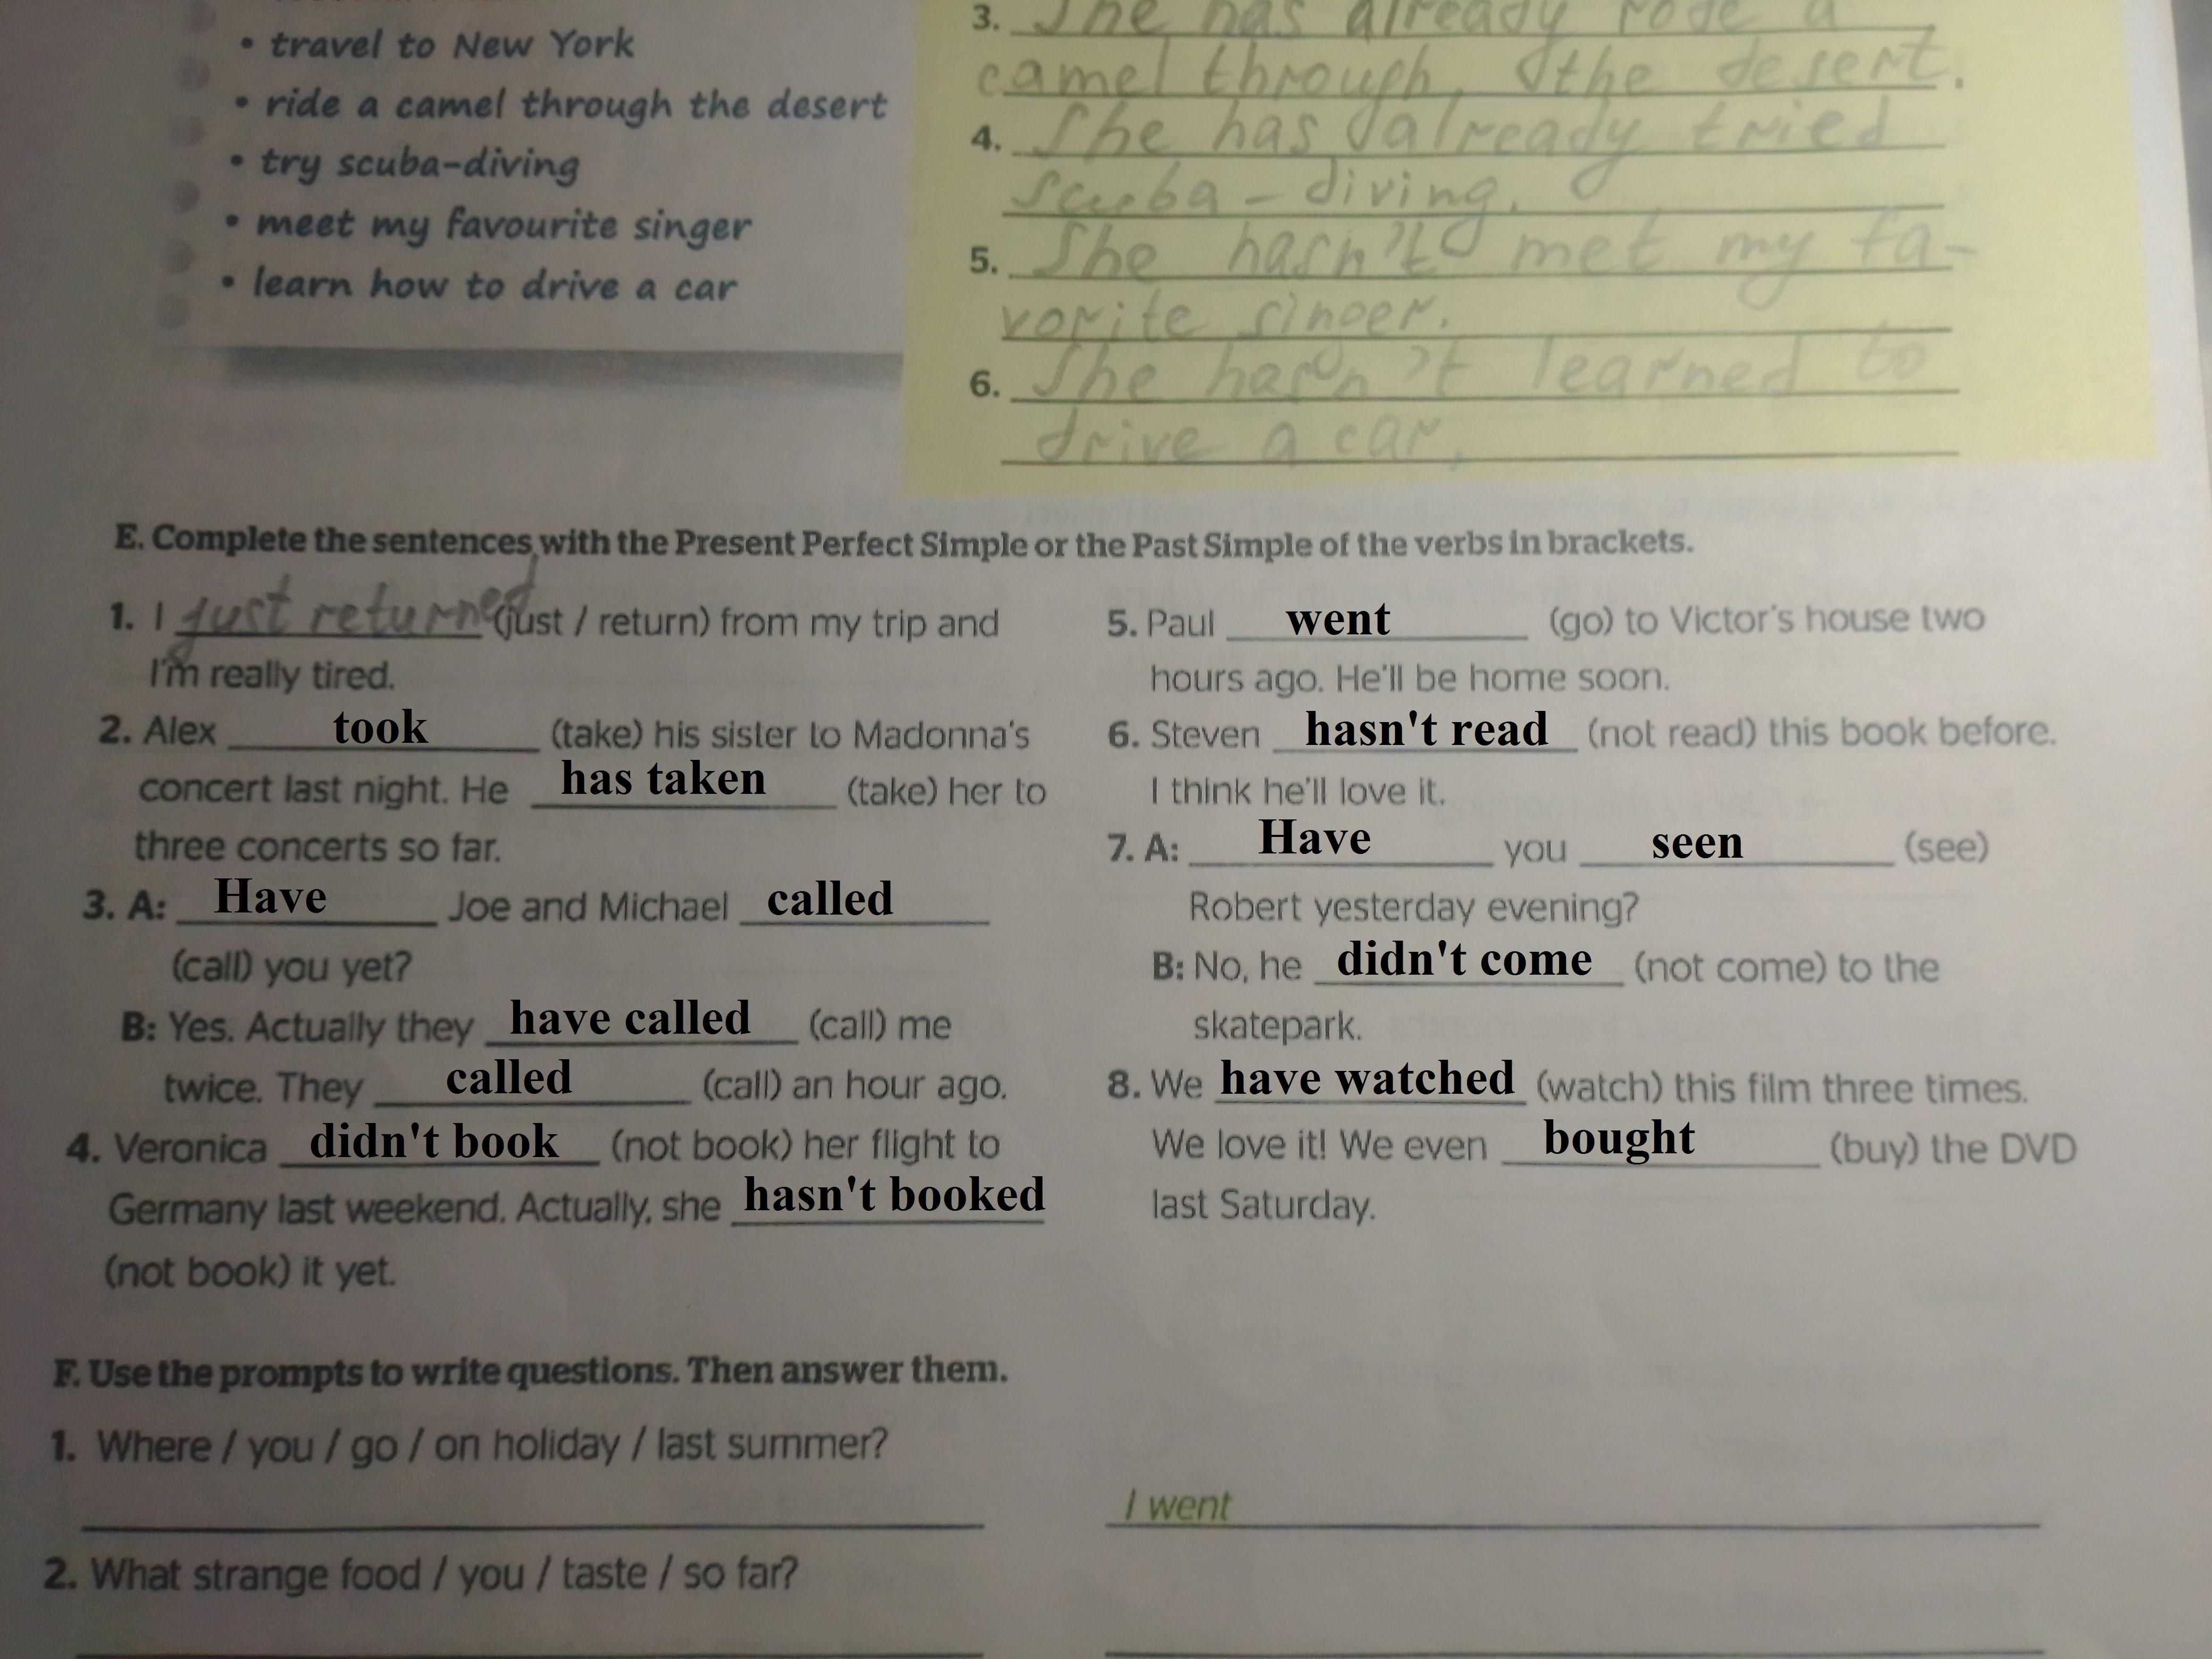 • travel to New York
• ride a camel through the desert
• try scuba-diving
• meet my favourite singer
• learn how to drive a car
3. She has already rode a
camel through the desert.
4. She has already tried
scuba-diving.
5. She hasn't met my fa-
vorite singer.
6. She hasn't learned to
drive a car.
E. Complete the sentences with the Present Perfect Simple or the Past Simple of the verbs in brackets.
1. I just returned (just / return) from my trip and
I'm really tired.
2. Alex took (take) his sister to Madonna's
concert last night. He has taken (take) her to
three concerts so far.
3. A: Have Joe and Michael called
(call) you yet?
B: Yes. Actually they have called (call) me
twice. They called (call) an hour ago.
4. Veronica didn't book (not book) her flight to
Germany last weekend. Actually, she hasn't booked
(not book) it yet.
5. Paul went (go) to Victor's house two
hours ago. He'll be home soon.
6. Steven hasn't read (not read) this book before.
I think he'll love it.
7. A: Have you seen (see)
Robert yesterday evening?
B: No, he didn't come (not come) to the
skatepark.
8. We have watched (watch) this film three times.
We love it! We even bought (buy) the DVD
last Saturday.
F. Use the prompts to write questions. Then answer them.
1. Where / you / go / on holiday / last summer?
I went
2. What strange food / you / taste / so far?